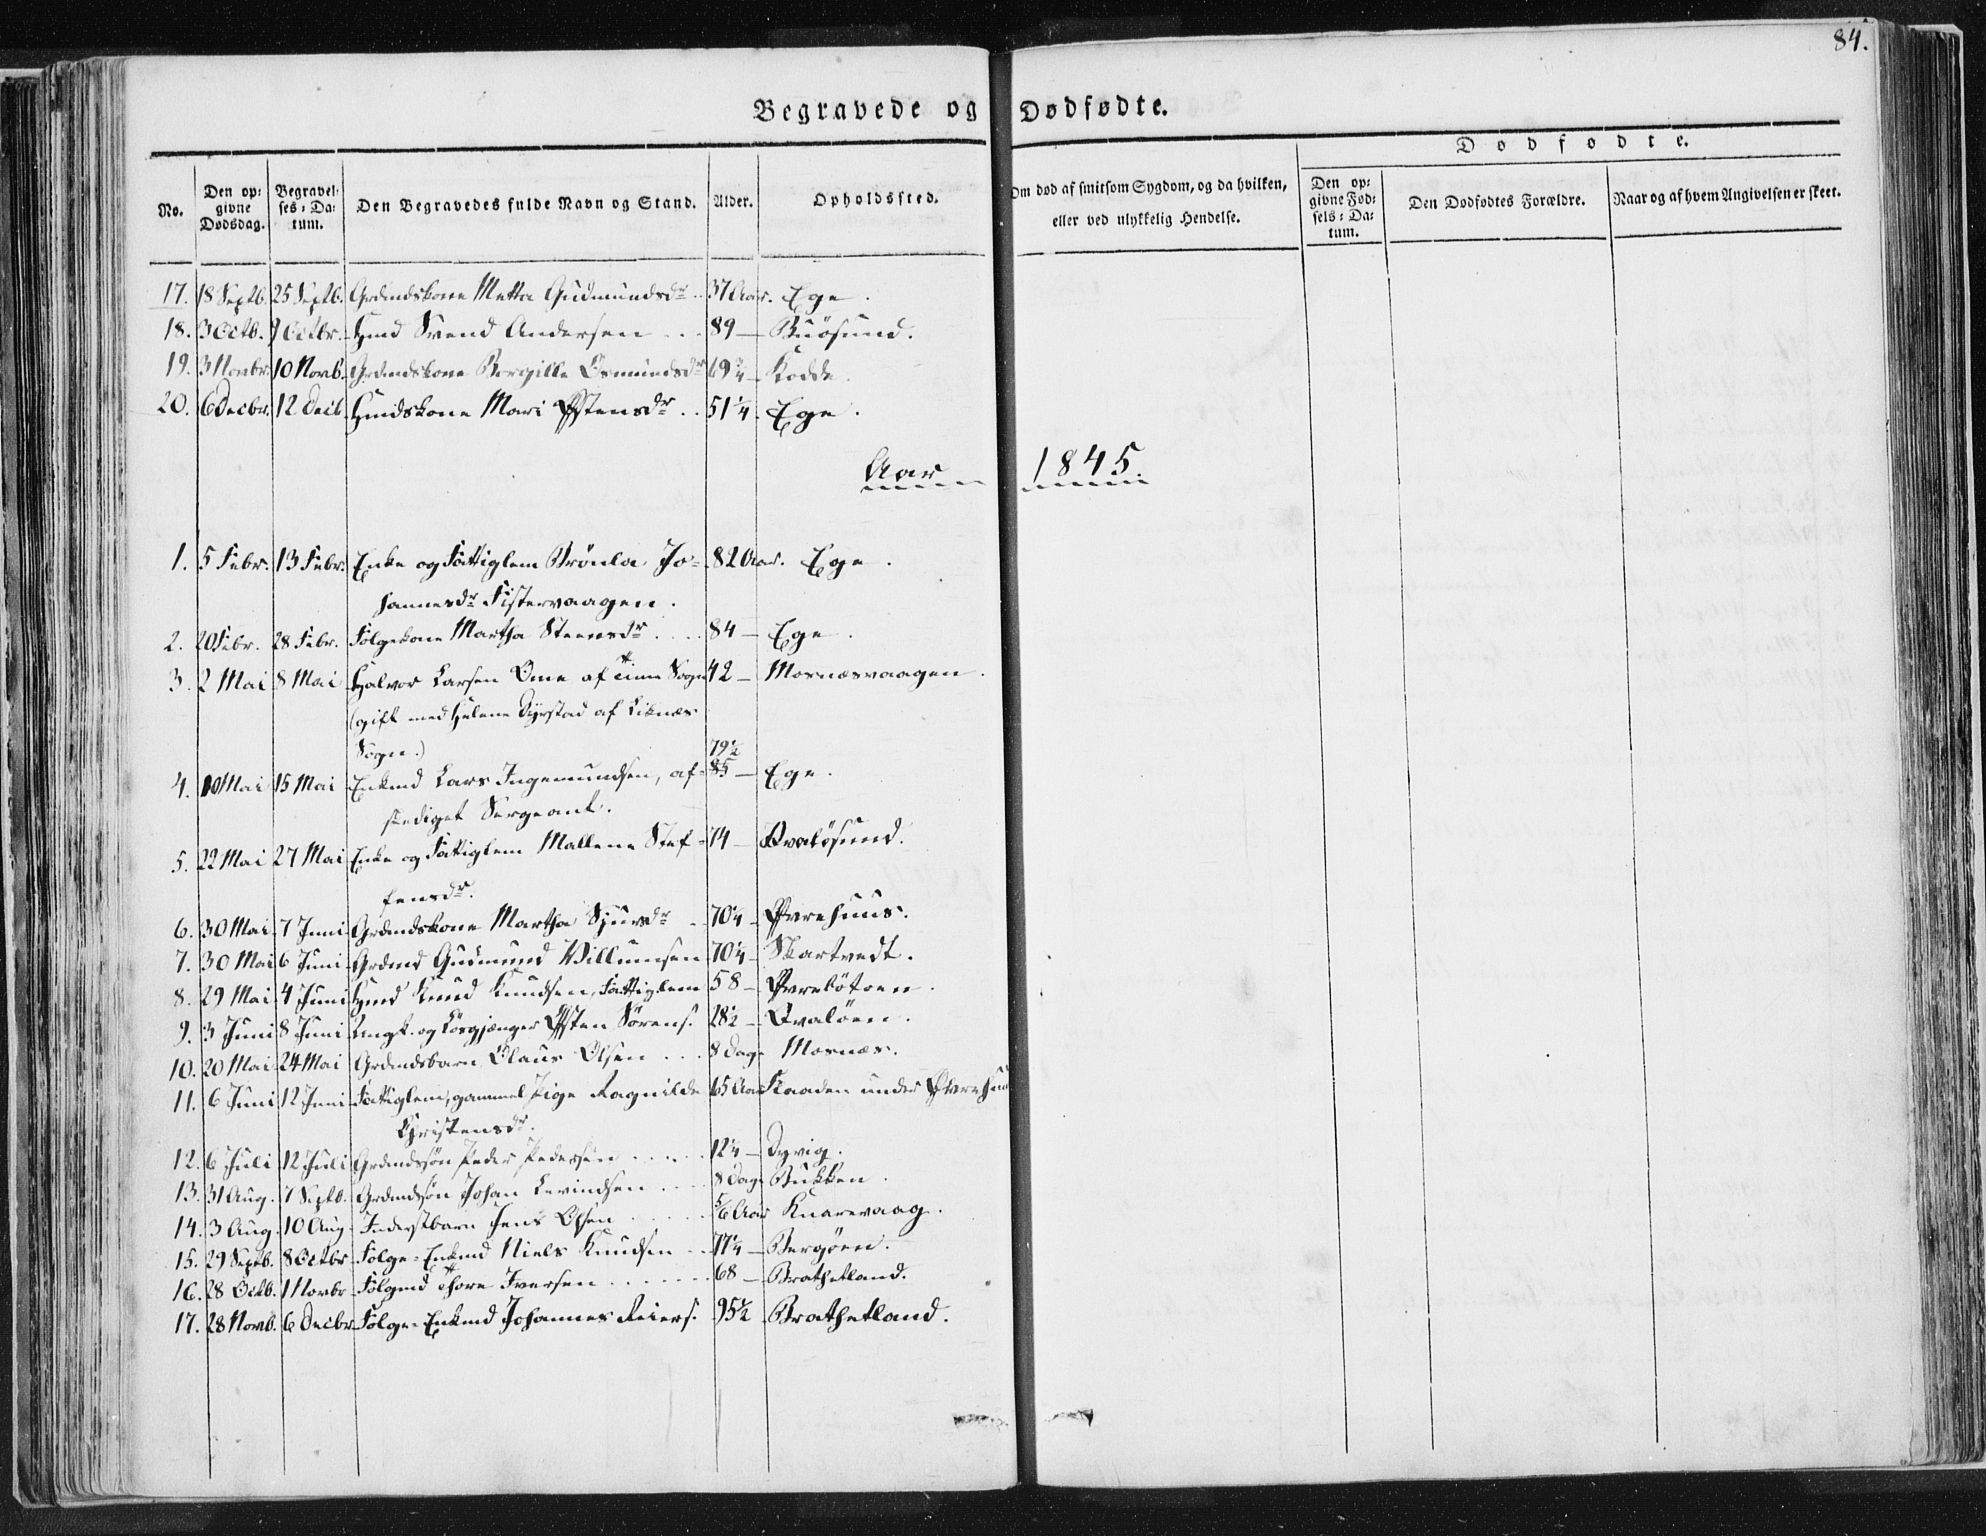 84.
Begravede og Dødfødte.
Dødfødte.
No. Den op-givne Dødsdag. Begravel-ses-Da-tum. Den Begravedes fulde Navn og Stand. Alder. Opholdssted. Om død af smitsom Sygdom, og da hvilken, eller ved ulykkelig Hendelse. Den op-givne Fød-sels-Da-tum. Den Dødfødtes Forældre. Naar og af hvem Angivelsen er skeet.
17. 18 Septb. 25 Septb. Grdmdskone Metta Gudmundsdr .. 37 Aar. Ege.
18. 3 Octb. 9 Octbr. Hmd Svend Andersen ... 89 — Buøsund.
19. 3 Novbr. 10 Novb. Grdmdskone Borgille Osmundsdr 69 3/4 — Kodde.
20. 6 Decbr. 12 Decb. Hmdskone Mari Østensdr .. 51 1/4. Ege.
Aar 1845.
1. 5 Febr. 13 Febr. Enke og Fattiglem Brønla Jo- 82 Aar. Ege.
hannesdr Fistervaagen.
2. 20 Febr. 28 Febr. Følgekone Martha Steensdr .... 84 — Ege.
3. 2 Mai 8 Mai Halvor Larsen Ome af Tinn Sogn 42 — Mosnæsvaagen.
(gift med Helene Dyrstad af Liknæs
Sogn.) 79 1/2
4. 10 Mai 15 Mai Enkmd Lars Ingemundsen, af- 85 — Ege.
skediget Sergeant.
5. 22 Mai 27 Mai Enke og Fattiglem Mallene Stef- 74 — Qvaløsund.
fensdr.
6. 30 Mai 7 Juni Grdmdskone Martha Sjursdr .. 70 1/4 — Øvrehuus.
7. 30 Mai 6 Juni Grdmd Gudmund Villumsen 70 1/4 — Skartvedt.
8. 29 Mai 4 Juni Hmd Knud Knudsen, Fattiglem 58 — Øvrebøtoen.
9. 3 Juni 8 Juni Ungk. og Løsgjænger Østen Sørens. 28 1/2 — Qvaløen.
10. 20 Mai 24 Mai Grdmdsbarn Olaus Olsen ... 8 Dage Mosnæs.
11. 6 Juni 12 Juni Fattiglem, gammel Pige Ragnilde 65 Aar Kaaden under Øvrehuus
Christensdr.
12. 6 Juli 12 Juli Grdmdssøn Peder Pedersen ..... 12 1/4 — Dyvig.
13. 31 Aug. 7 Septb. Grdmdssøn Johan Levindsen .... 8 Dage Bukken.
14. 3 Aug. 10 Aug. Inderstbarn Jens Olsen ..... 5/6 Aar Knarevaag.
15. 29 Septb. 8 Octbr Følge-Enkmd Niels Knudsen .. 77 1/4 — Bergøen.
16. 28 Octb. 1 Novbr Følgmd Thore Iversen ....... 68 — Brathetland.
17. 28 Novb. 6 Decbr Følge-Enkmd Johannes Reiers. 95 1/2 Brathetland.